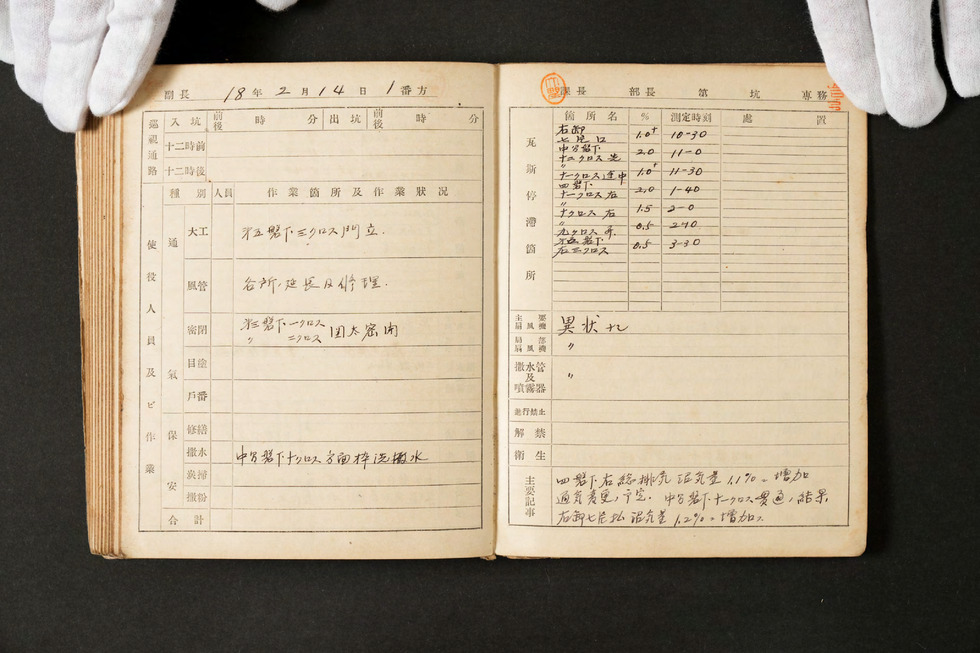 副長 18年 2月 14日 1番方
巡視通路 入坑 前後 時 分 出坑 前後 時 分
十二時前
十二時後
使役人員及ビ作業
種別 人員 作業箇所及作業状況
通氣
大工 第五盤下三クロス門立.
風管 各所、延長及修理.
密閉 第三盤下一クロス
〃 二クロス 密閉
目塗
戸番
保安
修繕
撒水 中 盤下十クロス方面枠洗撒水
炭掃
撒粉
合計
課長 部長 第 坑 専務
瓦斯停滞箇所
箇所名 % 測定時刻 處置
右卸 七片口 1.0⁺ 10-30
中 盤下 十二クロス先 2.0 11-0
〃 十一クロス途中 1.0⁺ 11-30
四盤下 十一クロス右 2.0 1-40
〃 十クロス右 1.5 2-0
〃 九クロス 0.5 2-70
第五盤下 右三クロス 0.5 3-30
主要扇風機 異状ナシ
局部扇風機 〃
撒水管及噴霧器 〃
進行禁止
解禁
衛生
主要記事
四盤下右総排気沼気量 1.1% 増加
通気変更、予定. 中 盤下十一クロス貫通、結果
右卸七片払沼気量 1.2% 増加ス